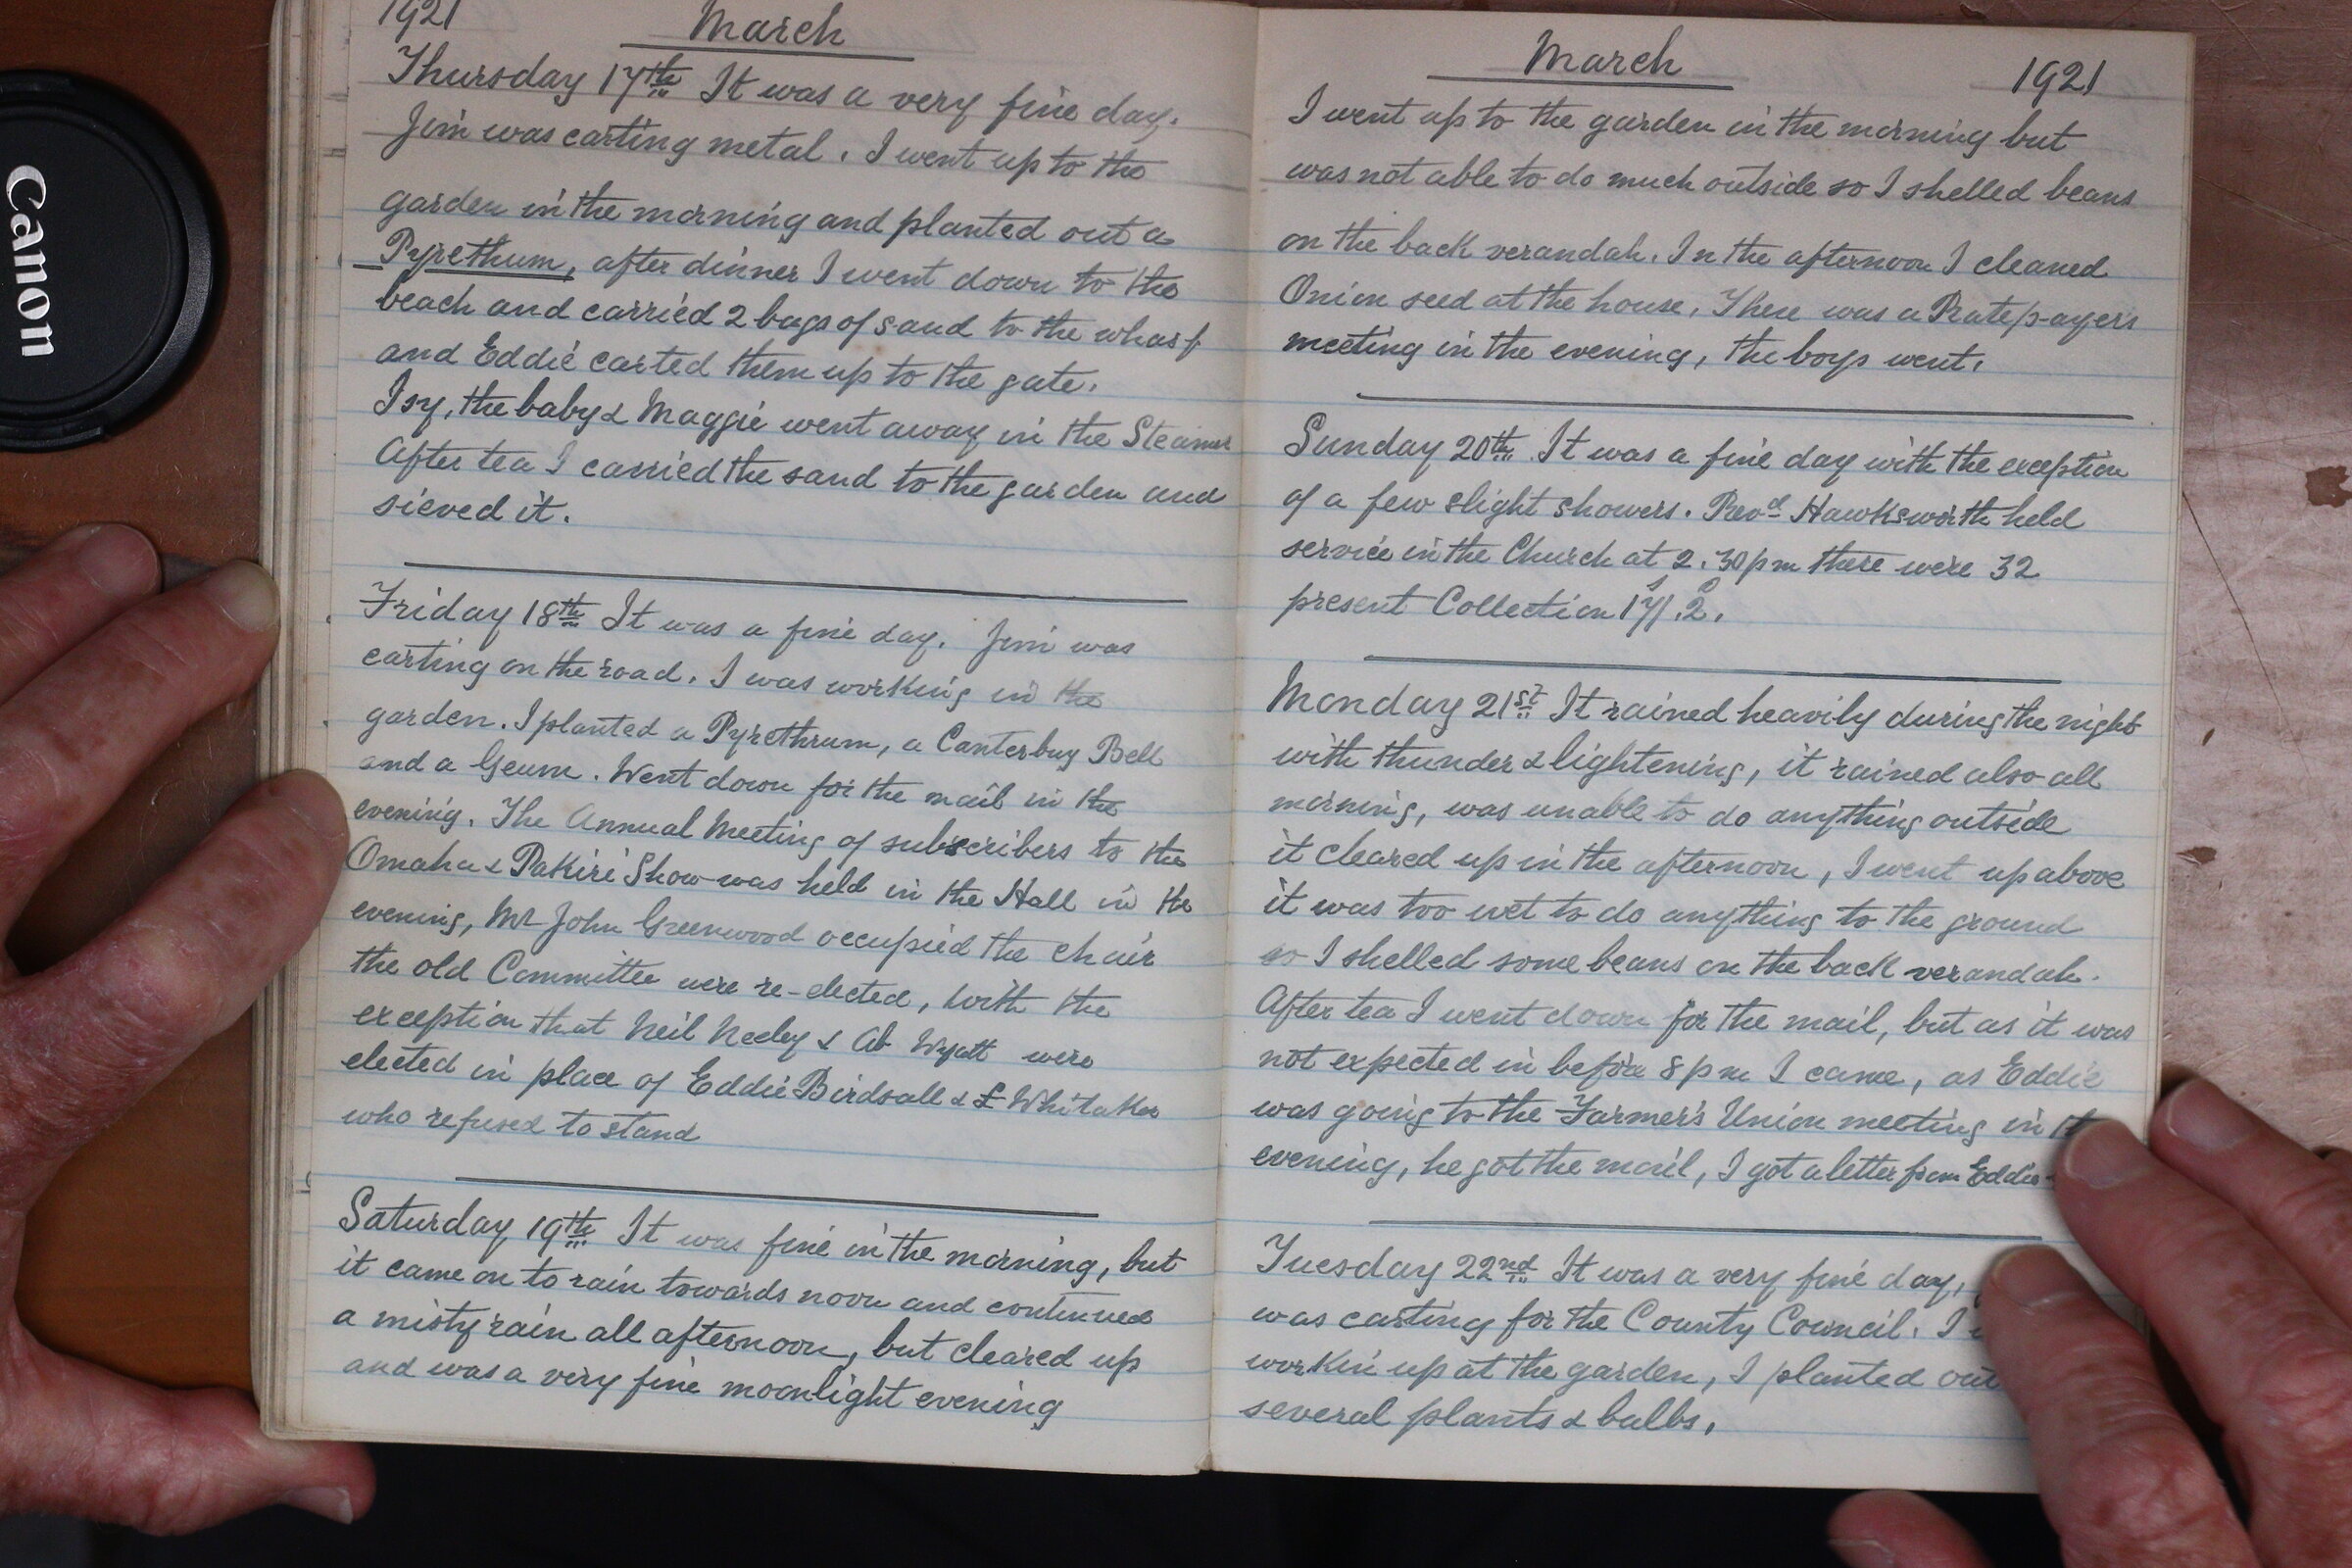 Canon
1921
March
Thursday 17th It was a very fine day.
Jim was carting metal. I went up to the
garden in the morning and planted out a
Pyrethum, after dinner I went down to the
beach and carried 2 bags of sand to the wharf
and Eddie carted them up to the gate.
Isy, the baby & Maggie went away in the Steamer
After tea I carried the sand to the garden and
sieved it.
Friday 18th It was a fine day. Jim was
carting on the road. I was working in the
garden. I planted a Pyrethrum, a Canterbuy Bell
and a Geum. Went down for the mail in the
evening. The Annual Meeting of subscribers to the
Omaha & Pakiri Show was held in the Hall in the
evening, Mr John Greenwood occupied the chair
the old Committee were re-elected, with the
exception that Neil Neeley & Ab Wyatt were
elected in place of Eddie Birdsall & E Whitaker
who refused to stand
Saturday 19th It was fine in the morning, but
it came on to rain towards noon and continued
a misty rain all afternoon, but cleared up
and was a very fine moonlight evening
March
1921
I went up to the garden in the morning but
was not able to do much outside so I shelled beans
on the back verandah. In the afternoon I cleaned
Onion seed at the house. There was a Ratepayers
meeting in the evening, the boys went.
Sunday 20th It was a fine day with the exception
of a few slight showers. Revd Hawksworth held
service in the Church at 2.30pm there were 32
present Collection 17/.2.
Monday 21st It rained heavily during the night
with thunder & lightening, it rained also all
morning, was unable to do anything outside
it cleared up in the afternoon, I went up above
it was too wet to do anything to the ground
so I shelled some beans on the back verandah.
After tea I went down for the mail, but as it was
not expected in before 8pm I came, as Eddie
was going to the Farmer's Union meeting in
evening, he got the mail, I got a letter from Eddie
Tuesday 22nd It was a very fine day,
was carting for the County Council. I
workin up at the garden, I planted out
several plants & bulbs.